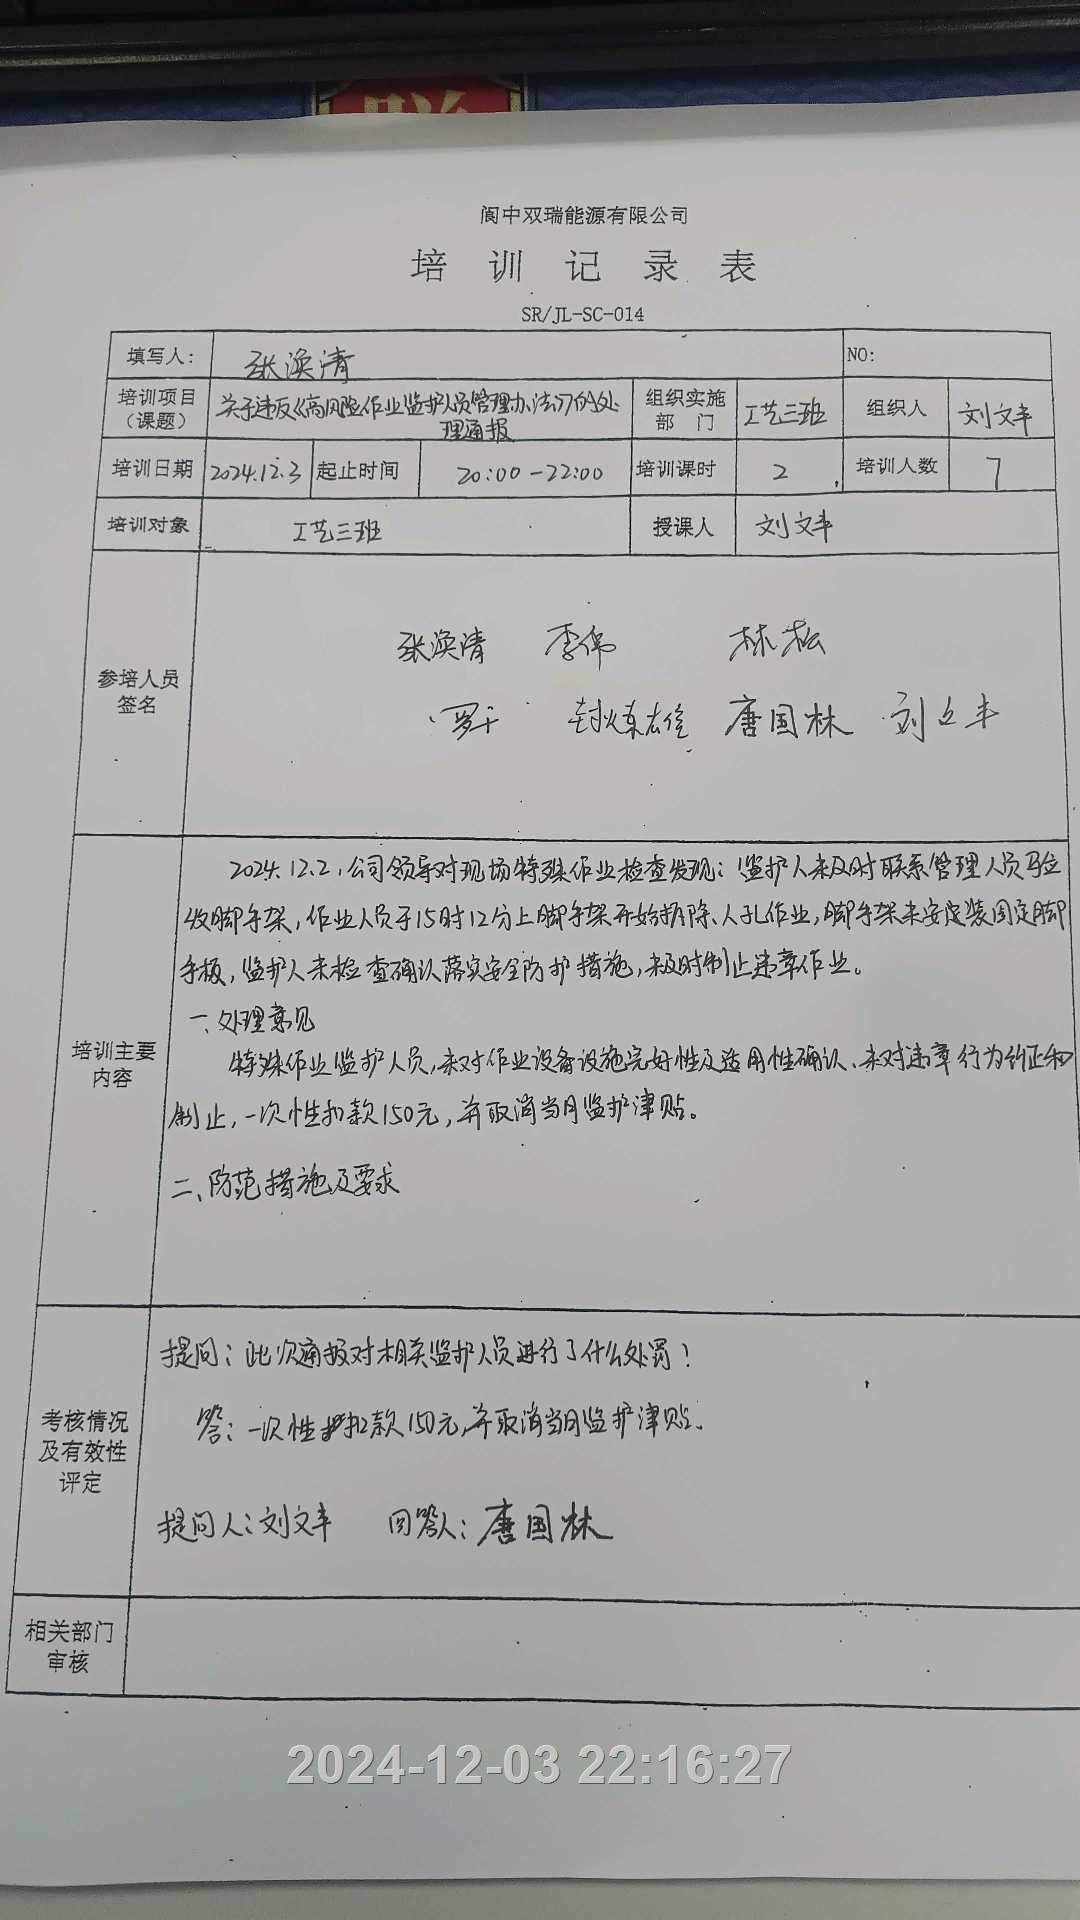 阆中双瑞能源有限公司
培训记录表
SR/JL-SC-014
填写人: 张涣清 NO:
培训项目（课题） 关于违反《高风险作业监护人员管理办法》的处理通报 组织实施部门 工艺三班 组织人 刘文丰
培训日期 2024.12.3 起止时间 20:00-22:00 培训课时 2 培训人数 7
培训对象 工艺三班 授课人 刘文丰
参培人员签名
张涣清 李伟 林松
罗干 封炼雄 唐国林 刘文丰
培训主要内容
2024.12.2,公司领导对现场特殊作业检查发现：监护人未及时联系管理人员验
收脚手架,作业人员于15时12分上脚手架开始拆除、人孔作业,脚手架未安装固定脚
手板,监护人未检查确认落实安全防护措施,未及时制止违章作业。
一、处理意见
特殊作业监护人员,未对作业设备设施完好性及适用性确认、未对违章行为纠正和
制止,一次性扣款150元,并取消当月监护津贴。
二、防范措施及要求
考核情况及有效性评定
提问：此次通报对相关监护人员进行了什么处罚！
答：一次性扣款150元,并取消当月监护津贴.
提问人：刘文丰 回答人：唐国林
相关部门审核
2024-12-03 22:16:27